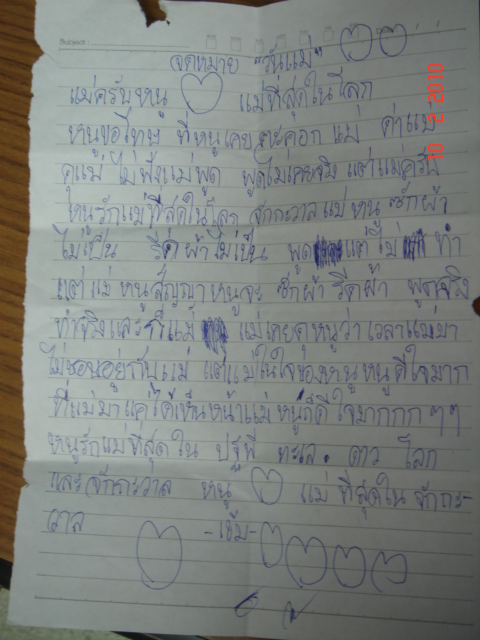 Subject :
จดหมาย "วันแม่"
แม่ครับหนู แม่ที่สุดในโลก
หนูขอโทษ ที่หนูเคยตะคอก แม่ ด่าแม่
ดุแม่ ไม่ฟังแม่พูด พูดไม่เคยจริง แต่แม่ครับ
หนูรักแม่ที่สุดในโลก จักกะวาลแม่หนู ซักผ้า
ไม่เป็น รีดผ้าไม่เป็น พูด แต่ไม่ ทำ
แต่แม่ หนูสัญญาหนูจะ ซักผ้า รีดผ้า พูดจริง
ทำจริงและ แม่ แม่เคยดุหนูว่าเวลาแม่มา
ไม่ชอบอยู่กับแม่ แต่แม่ในใจของหนู หนูดีใจมาก
ที่แม่มาแค่ได้เห็นหน้าแม่ หนูก็ดีใจมากกก ๆๆ
หนูรักแม่ที่สุดใน ปฐพี ทะเล. ดาว โลก
และจักกะวาล หนู แม่ ที่สุดใน จักกะ-
วาล
10 2 2010